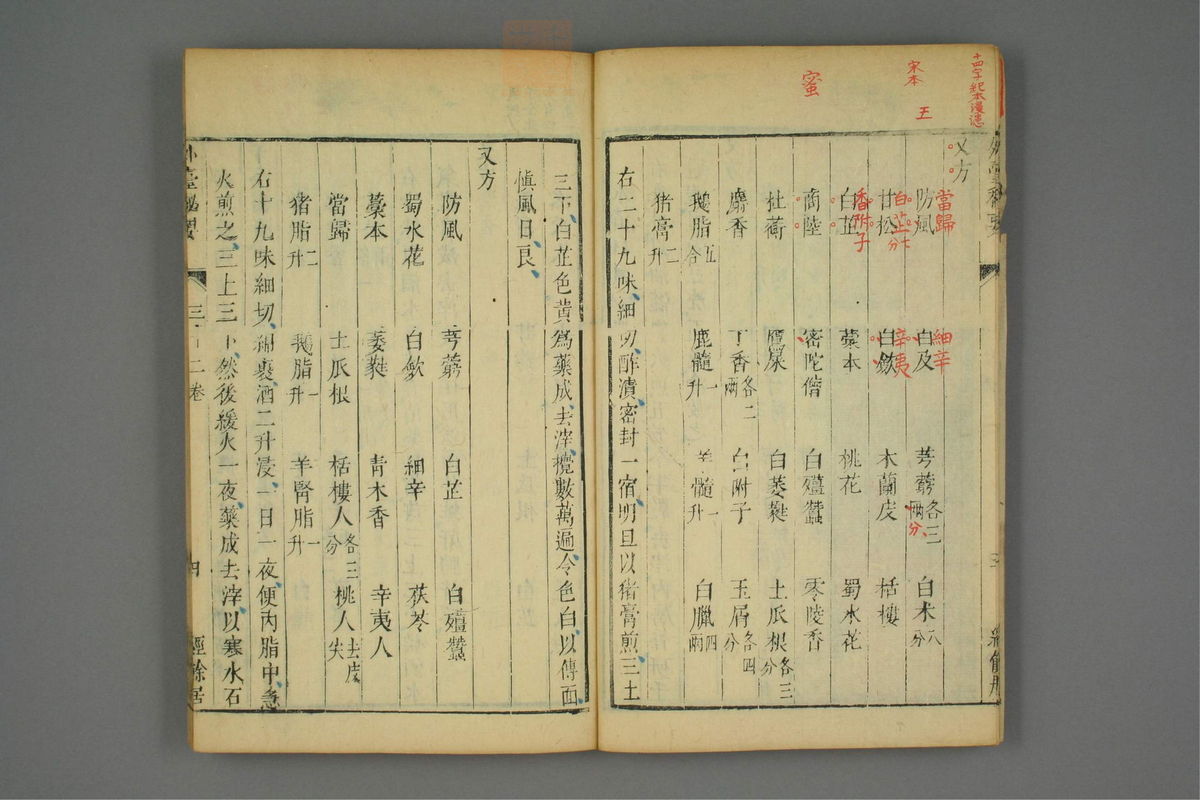 十四字紀本漫患
宋本
五
蜜
又方
防風 白及 芎藭各三兩 白朮八分
當歸 細辛 分
甘松 白斂 木蘭皮 栝樓
白芷七分 辛夷
白芷 藁本 桃花 蜀水花
香附子
商陸 密陀僧 白殭蠶 零陵香
杜蘅 鷹屎 白萎蕤 土瓜根各三分
麝香 丁香各二兩 白附子 玉屑各四分
鵝脂五合 鹿髓一升 羊髓一升 白臘四兩
猪膏二升
右二十九味細切酢漬密封一宿明旦以猪膏煎三土
三下白芷色黄為藥成去滓攪數萬遍令色白以傅面
慎風日良
又方
防風 芎藭 白芷 白殭蠶
蜀水花 白斂 細辛 茯苓
藁本 萎蕤 青木香 辛夷人
當歸 土瓜根 栝樓人各三分 桃人去皮尖
猪脂二升 鵝脂一升 羊腎脂一升
右十九味細切綿裹酒二升浸一日一夜便内脂中急
火煎之三上三下然後緩火一夜藥成去滓以寒水石
外臺秘要
三十二卷
四
經餘居